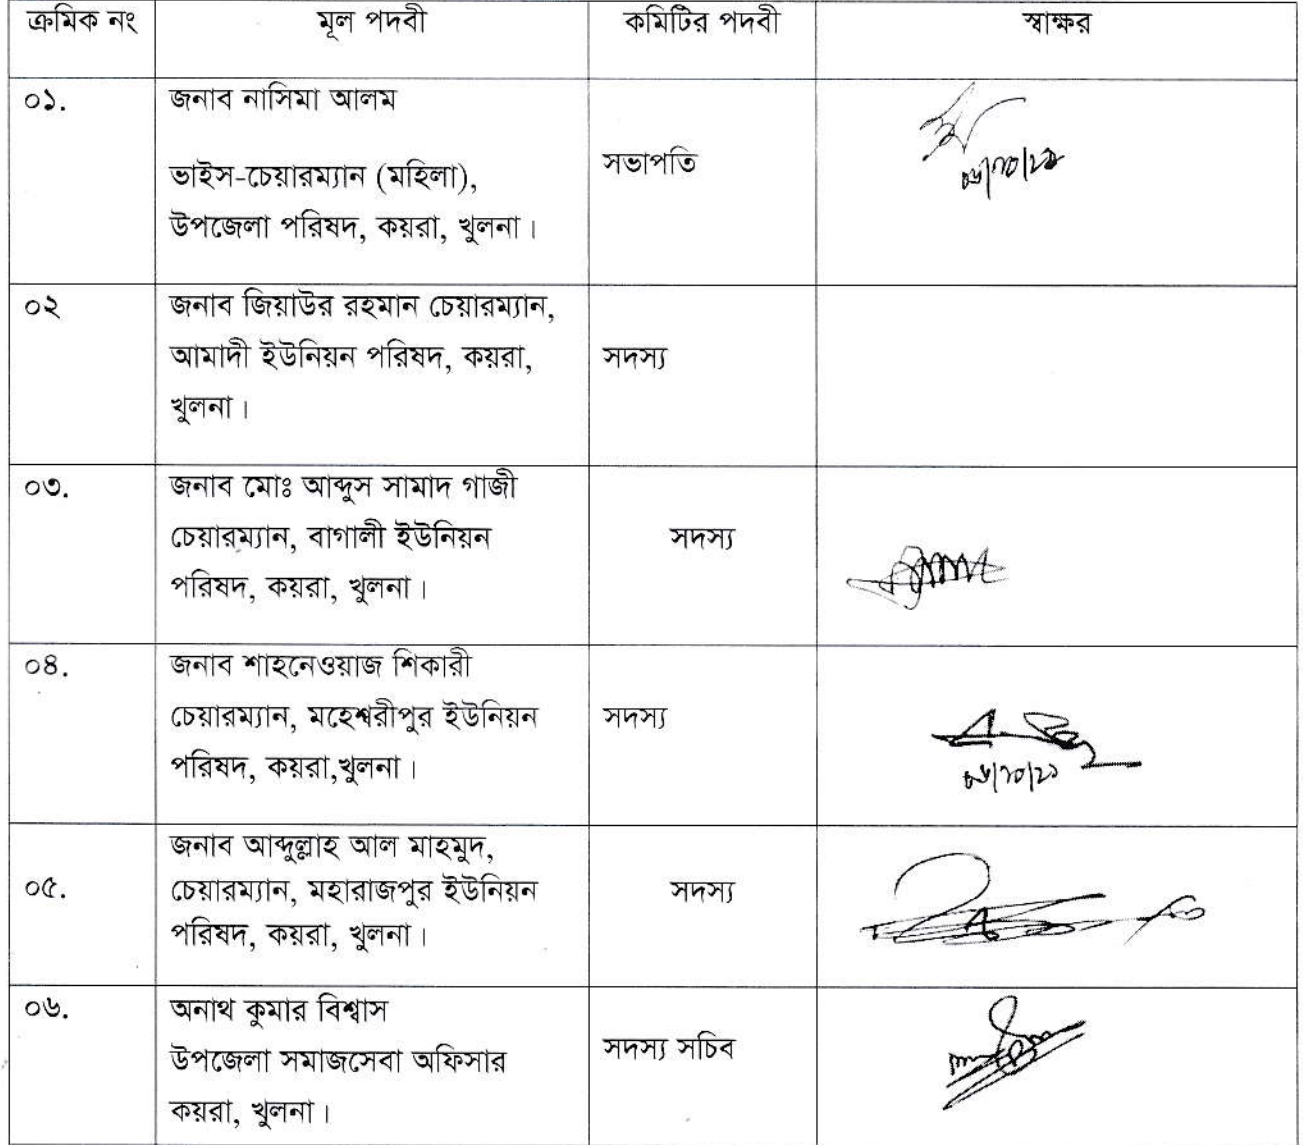 ক্রমিক নং মূল পদবী কমিটির পদবী স্বাক্ষর
০১. জনাব নাসিমা আলম
ভাইস-চেয়ারম্যান (মহিলা), সভাপতি
উপজেলা পরিষদ, কয়রা, খুলনা।
০২ জনাব জিয়াউর রহমান চেয়ারম্যান,
আমাদী ইউনিয়ন পরিষদ, কয়রা, সদস্য
খুলনা।
০৩. জনাব মোঃ আব্দুস সামাদ গাজী
চেয়ারম্যান, বাগালী ইউনিয়ন সদস্য
পরিষদ, কয়রা, খুলনা।
০৪. জনাব শাহনেওয়াজ শিকারী
চেয়ারম্যান, মহেশ্বরীপুর ইউনিয়ন সদস্য
পরিষদ, কয়রা,খুলনা।
জনাব আব্দুল্লাহ আল মাহমুদ,
০৫. চেয়ারম্যান, মহারাজপুর ইউনিয়ন সদস্য
পরিষদ, কয়রা, খুলনা।
০৬. অনাথ কুমার বিশ্বাস
উপজেলা সমাজসেবা অফিসার সদস্য সচিব
কয়রা, খুলনা।